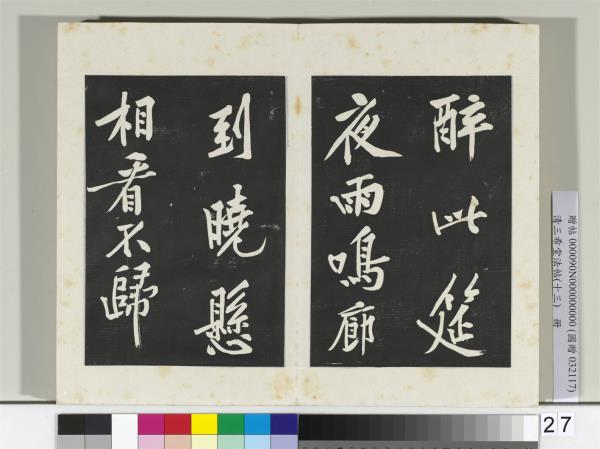 醉此筵
夜雨鳴廊
到曉懸
相看不歸
贈帖 000090N000000000 (國贈 032117)
清三希堂法帖(十三) 冊
27